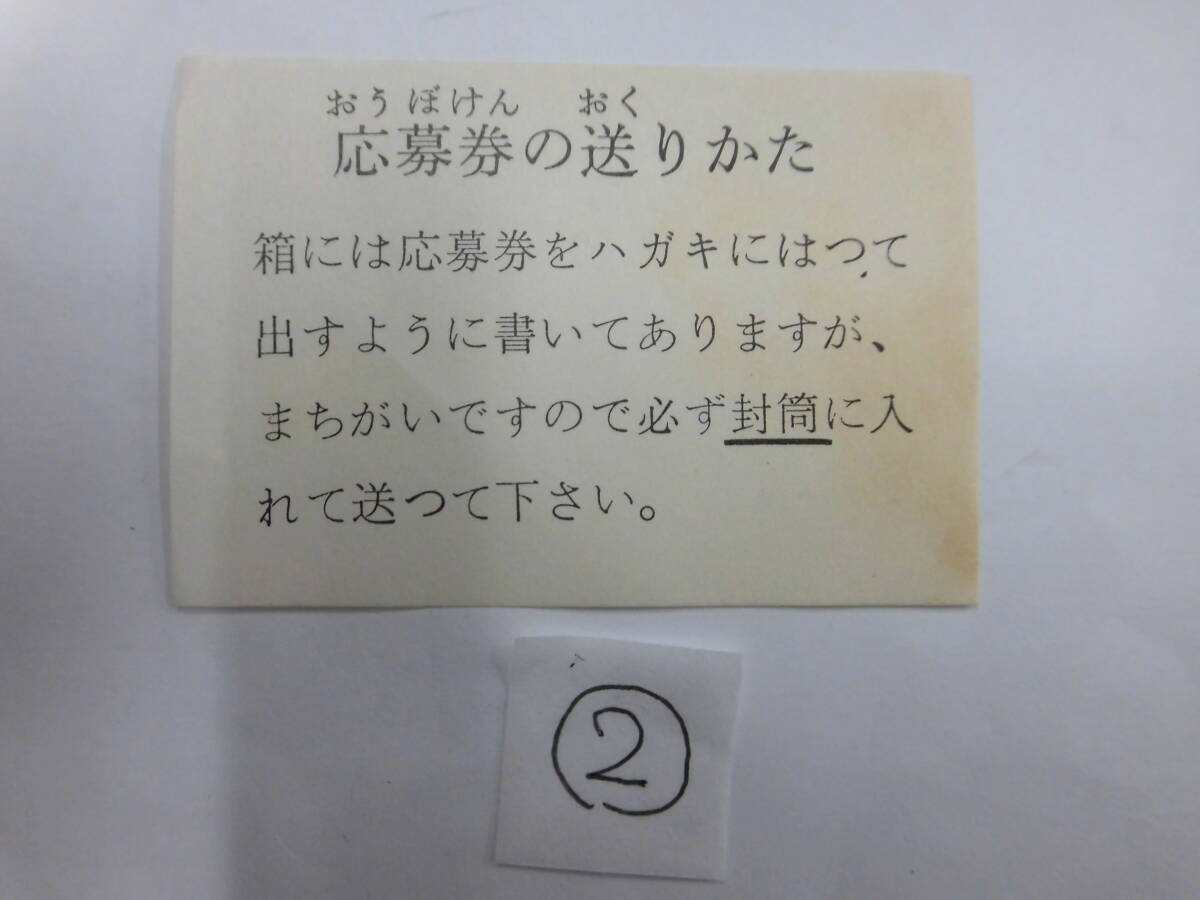 おうぼけん おく
応募券の送りかた
箱には応募券をハガキにはつて
出すように書いてありますが、
まちがいですので必ず封筒に入
れて送つて下さい。
②